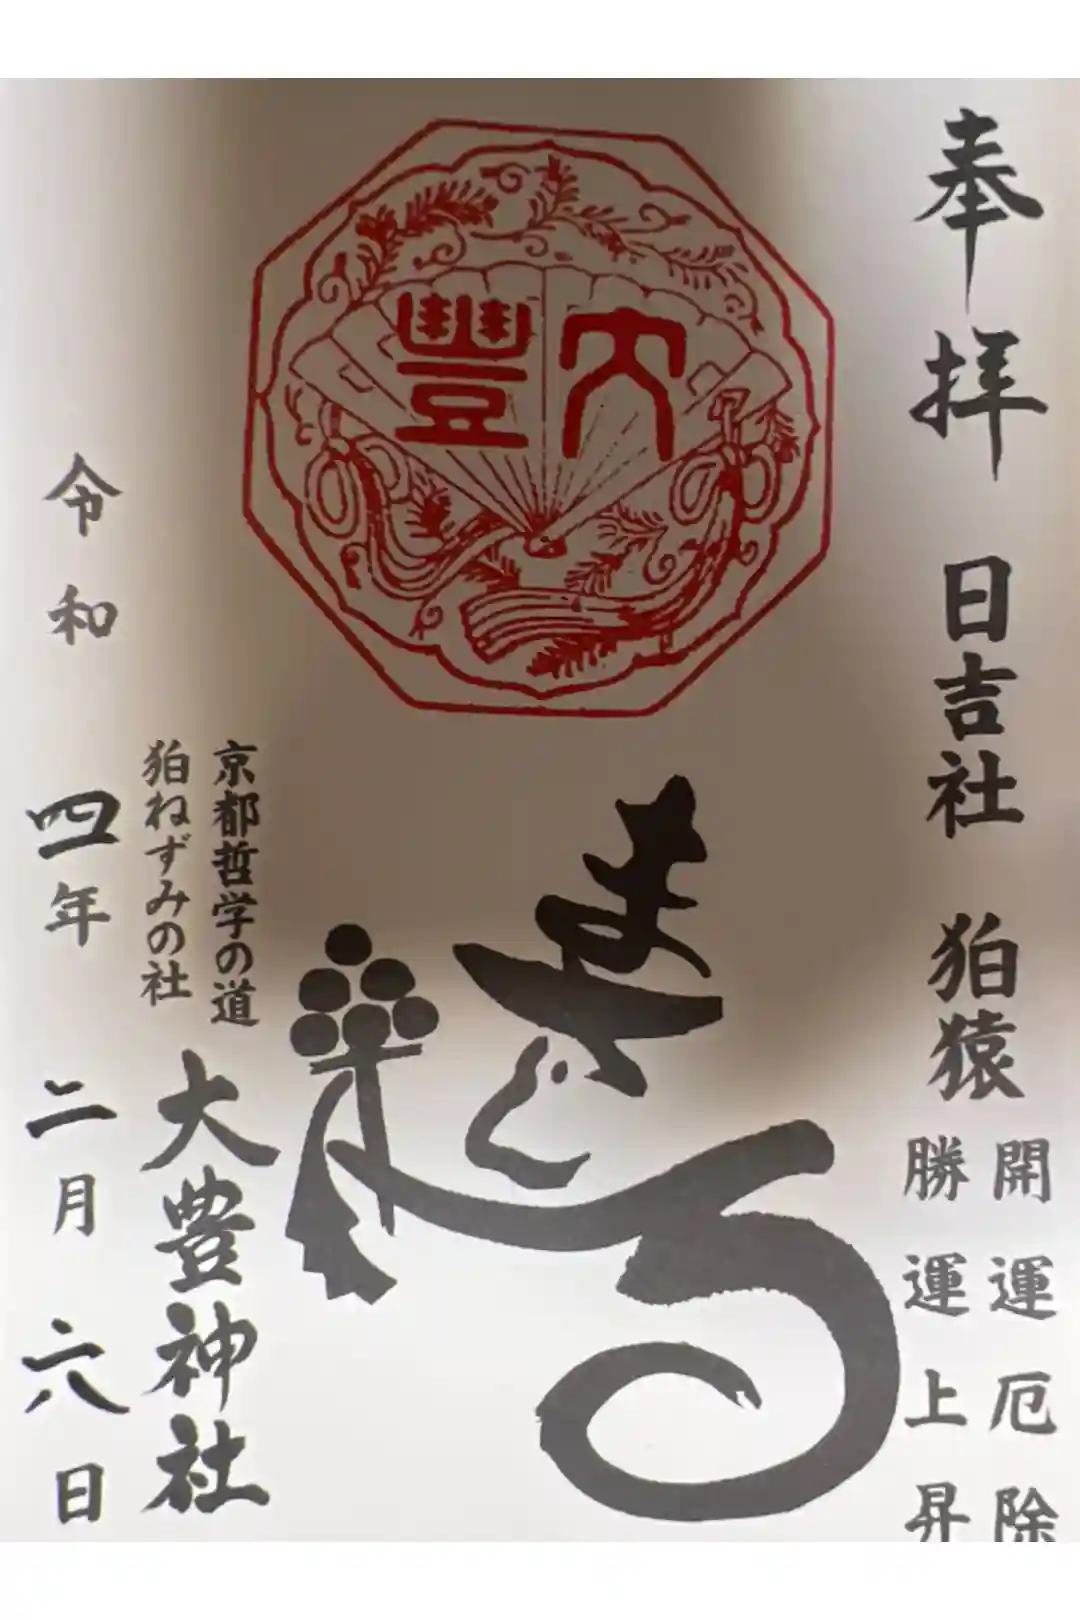 奉拝
日吉社
狛猿
開運厄除
勝運上昇
大豐
まさる
京都哲学の道
狛ねずみの社
大豊神社
令和四年二月六日